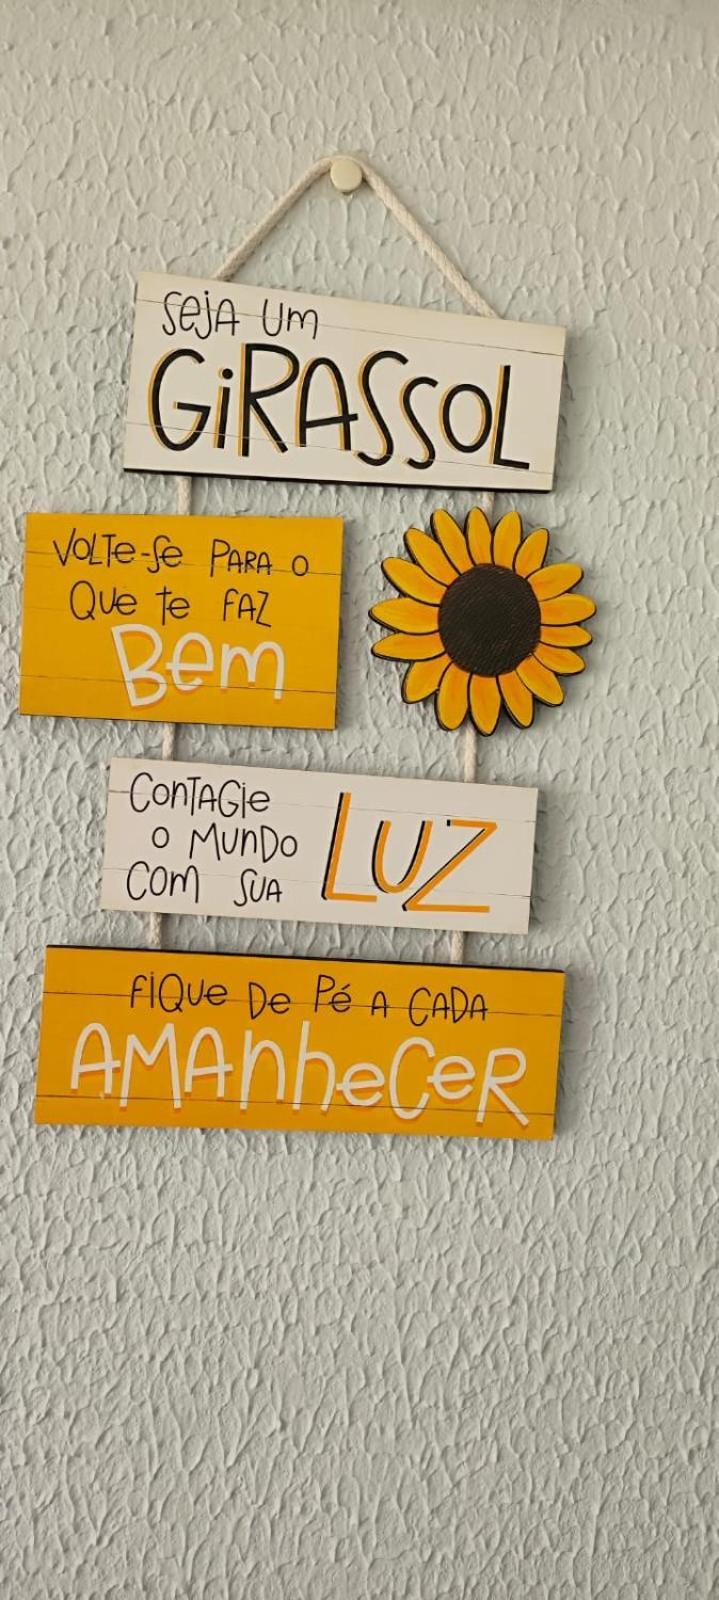 Seja um
GiRASSOL
VOLTe-Se PARA O
Que te FAZ
Bem
ConTAGie
o MunDo
Com SuA
LUZ
FiQue De Pé A CADA
AMAnheCeR